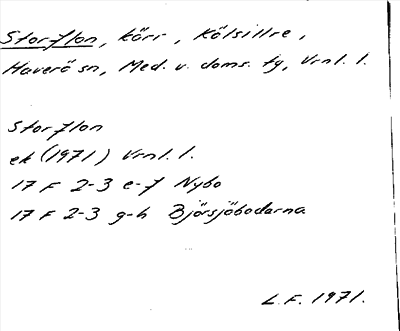 Storflon, kärr, Kölsillre,
Haverö sn, Med. v. doms. tg, Vrnl. l.
Storflon
ek (1971) Vrnl. l.
17 F 2-3 e-f Nybo
17 F 2-3 g-h Björsjöbodarna
L.F. 1971.